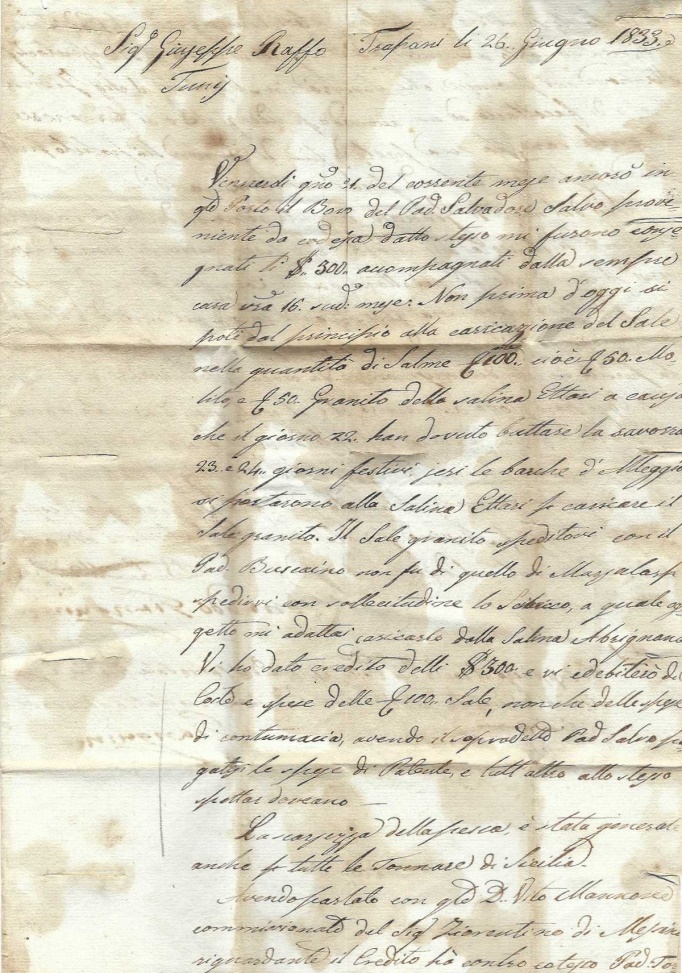 Sigr Giuseppe Raffo Trapani li 26. Giugno 1833
Tunij
Venerdi gno 21. del corrente mese ancorò in
qto Porto il Bovo del Pad. Salvadore Salvo prove
niente da dallo stesso mi furono conse
gnati li $. 300. accompagnati dalla sempre
cara vra 16. sud. mese: Non prima d'oggi si
potè dal principio alla caricazione del Sale
nella quantità di Salme £ 100. cioè £ 50. Mo
lito, e £ 50. Granito della salina Ettari a causa
che il giorno 22. han dovuto buttare la savorra
23. e 24. giorni festivi, jeri le barche d'Alleggio
si portarono alla Salina Ettari p caricare il
Sale granito. Il Sale granito speditovi con il
Pad. Buscaino non fu di quello di
spedirvi con sollecitudine lo a quale og
getto mi adattai caricarlo dalla Salina Abrignano
Vi ho dato credito delli $ 300. e vi debiterò del
Costo e spese delle £ 100. Sale, non che delle spese
di contumacia, avendo il sopradetto Pad. Salvo pa
gatosi le spese di Patente, e tutt'altro allo stesso
spettar doveano —
La scarsezza della pesca, è stata generale
anche p tutte le Tonnare di Sicilia.
Avendo parlato con qto D. Vito
commissionato del Sigr Fiorentino di
riguardante il Credito ha contro cotesto Pad.